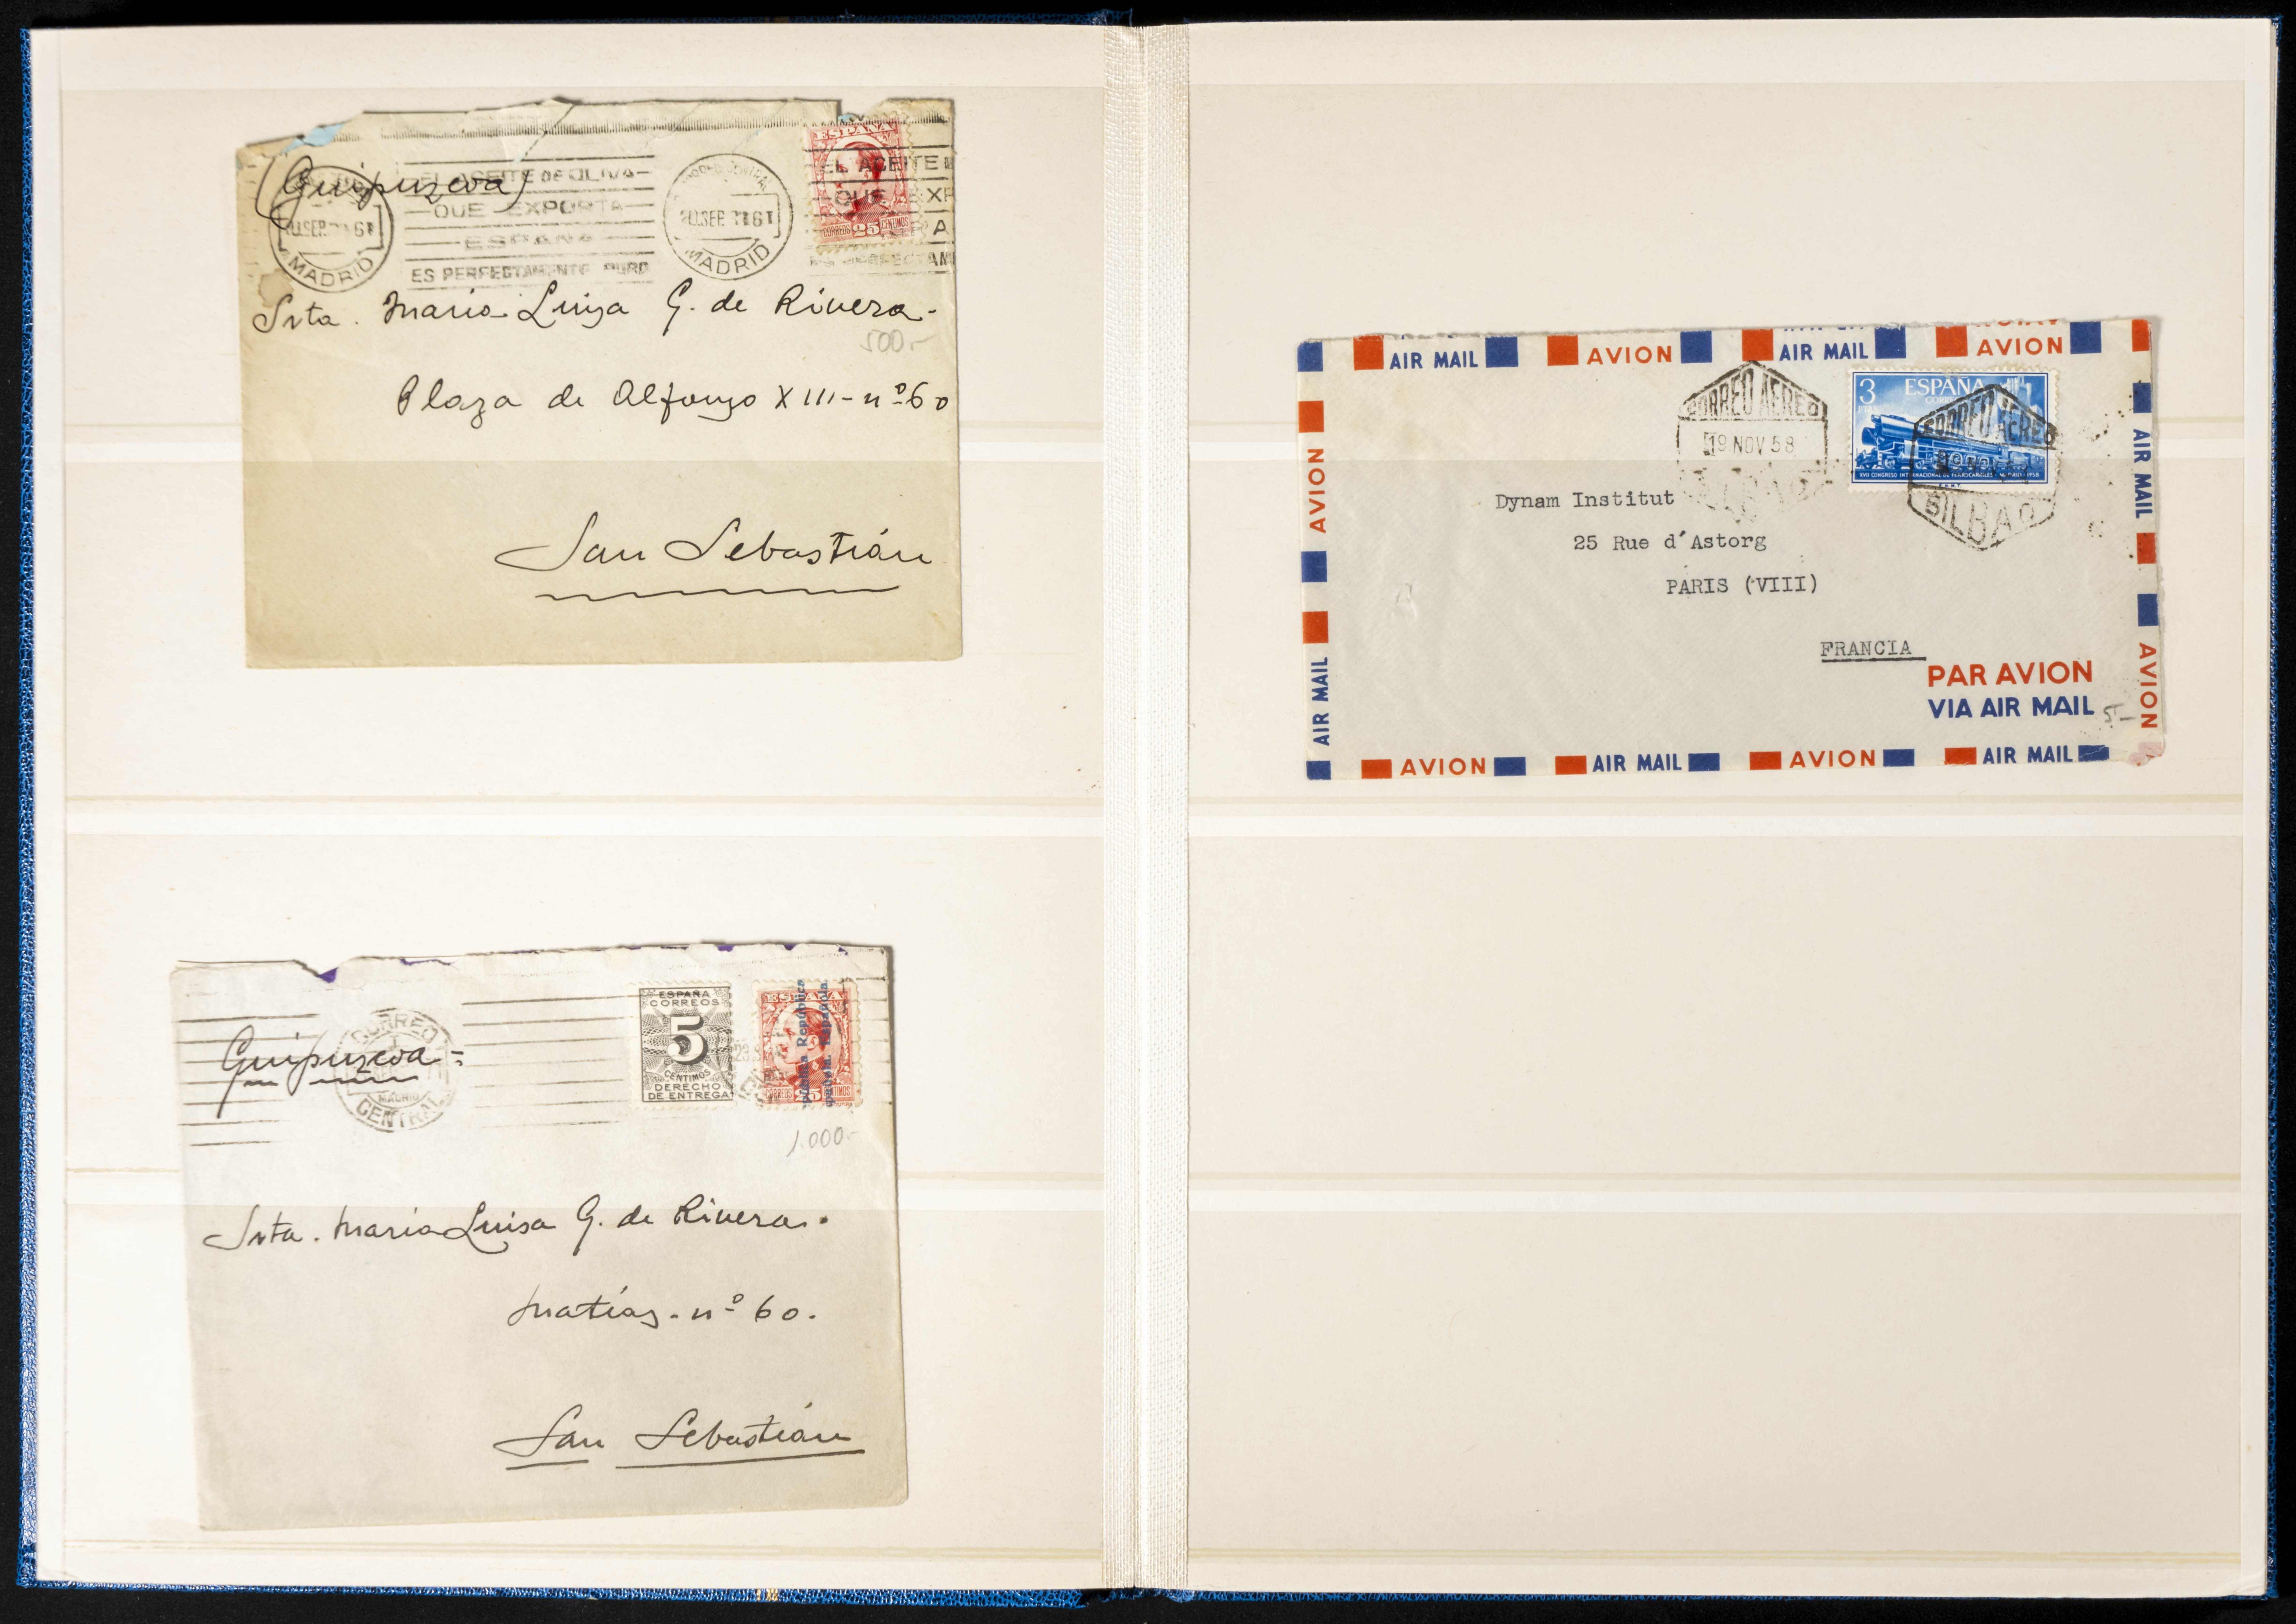 (Guipuzcoa)
EL ACEITE DE OLIVA
QUE EXPORTA
ESPAÑA
ES PERFECTAMENTE PURO
MADRID
CORREO CENTRAL
20.SEP. 6T
MADRID
ESPAÑA
CORREOS 25 CENTIMOS
EL ACEITE
QUE EXP
Srta. Maria Luisa G. de Rivera.
500.-
Plaza de Alfonso XIII - nº 60
San Sebastián
Guipuzcoa=
CORREO
MADRID
CENTRAL
ESPAÑA
CORREOS
5
CENTIMOS
DERECHO
DE ENTREGA
CORREOS 25 CENTIMOS
República
Española.
1.000.-
Srta. Maria Luisa G. de Rivera.
Matias. nº 60.
San Sebastián
AIR MAIL AVION AIR MAIL AVION
AVION
AIR MAIL
CORREO AEREO
19 NOV 58
3
PTAS
ESPAÑA
CORREOS
XVII CONGRESO INTERNACIONAL DE FERROCARRILES - MADRID - 1958
CORREO AEREO
BILBAO
Dynam Institut
25 Rue d'Astorg
PARIS (VIII)
FRANCIA
PAR AVION
VIA AIR MAIL
5.-
AIR MAIL
AVION
AVION AIR MAIL AVION AIR MAIL